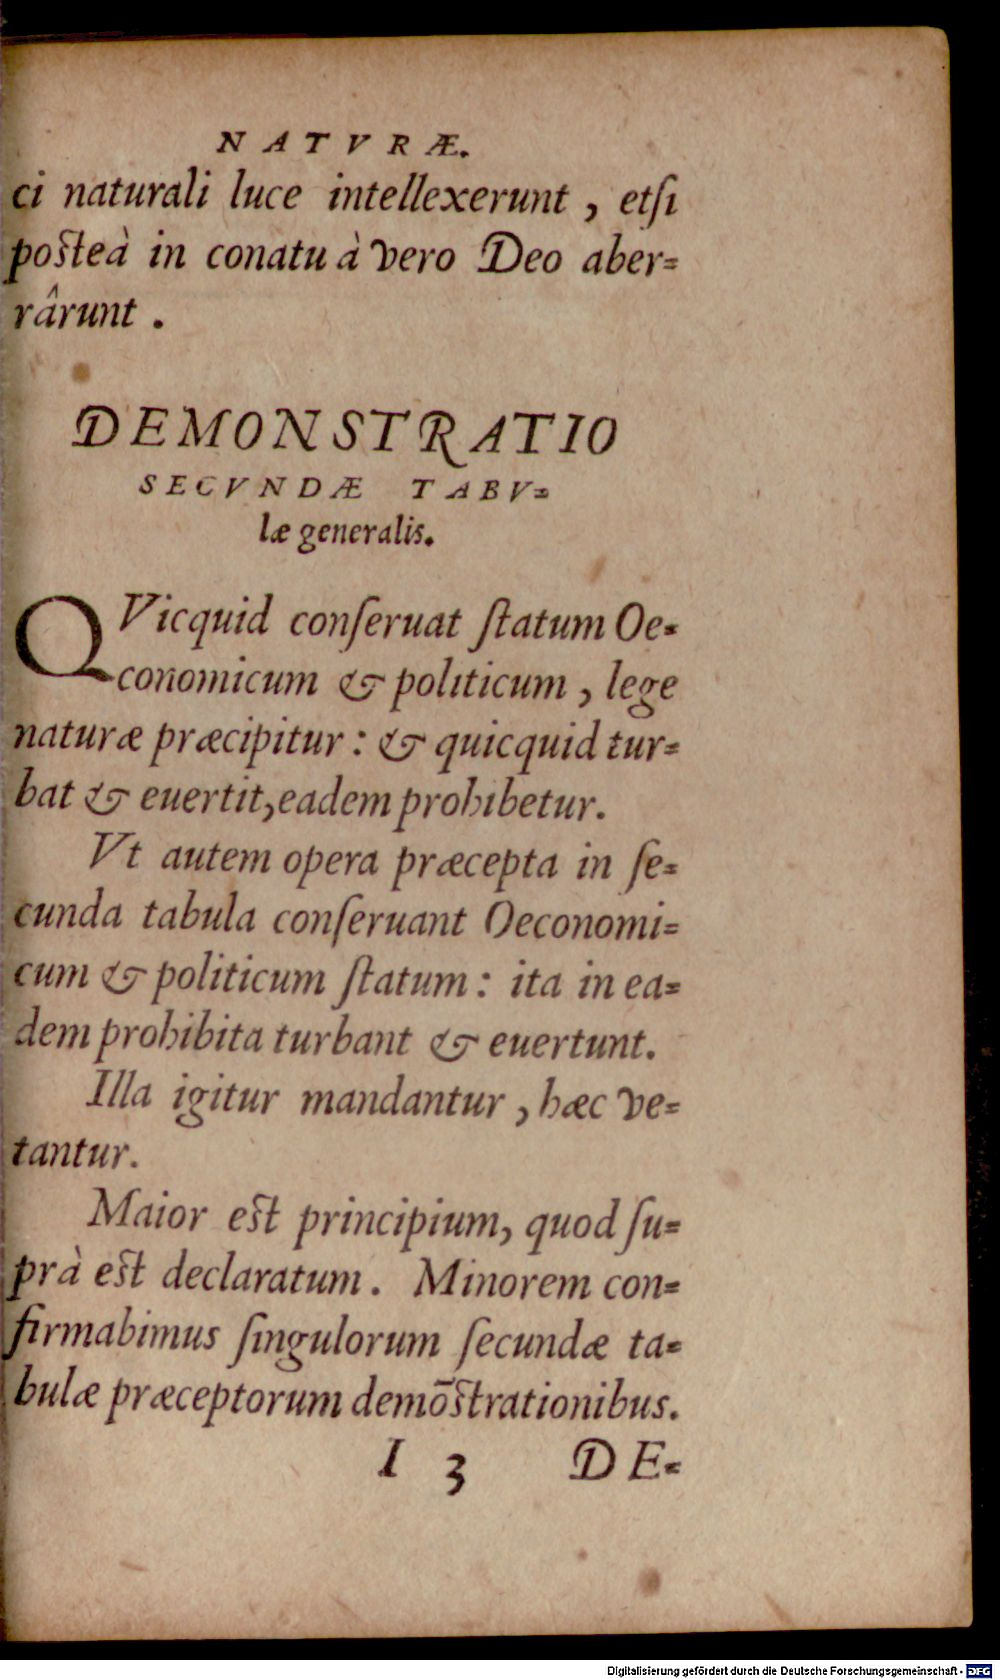 NATVRÆ.
ci naturali luce intellexerunt, etſi
posteà in conatu à vero Deo aber-
rârunt.
DEMONSTRATIO
SECVNDÆ TABV-
læ generalis.
QVicquid conſeruat ſtatum Oe-
conomicum & politicum, lege
naturæ præcipitur: & quicquid tur-
bat & euertit, eadem prohibetur.
Vt autem opera præcepta in ſe-
cunda tabula conſeruant Oeconomi-
cum & politicum ſtatum: ita in ea-
dem prohibita turbant & euertunt.
Illa igitur mandantur, hæc ve-
tantur.
Maior est principium, quod ſu-
prà est declaratum. Minorem con-
firmabimus ſingulorum ſecundæ ta-
bulæ præceptorum demõstrationibus.
I 3 DE-
Digitalisierung gefördert durch die Deutsche Forschungsgemeinschaft - DFG